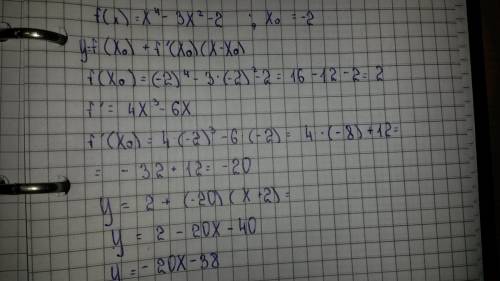 f(x) = x⁴ - 3x² - 2 ; x₀ = -2
y = f(x₀) + f'(x₀)(x-x₀)
f(x₀) = (-2)⁴ - 3·(-2)² - 2 = 16 - 12 - 2 = 2
f' = 4x³ - 6x
f'(x₀) = 4(-2)³ - 6(-2) = 4·(-8) + 12 =
= -32 + 12 = -20
y = 2 + (-20)(x+2) =
y = 2 - 20x - 40
y = -20x - 38